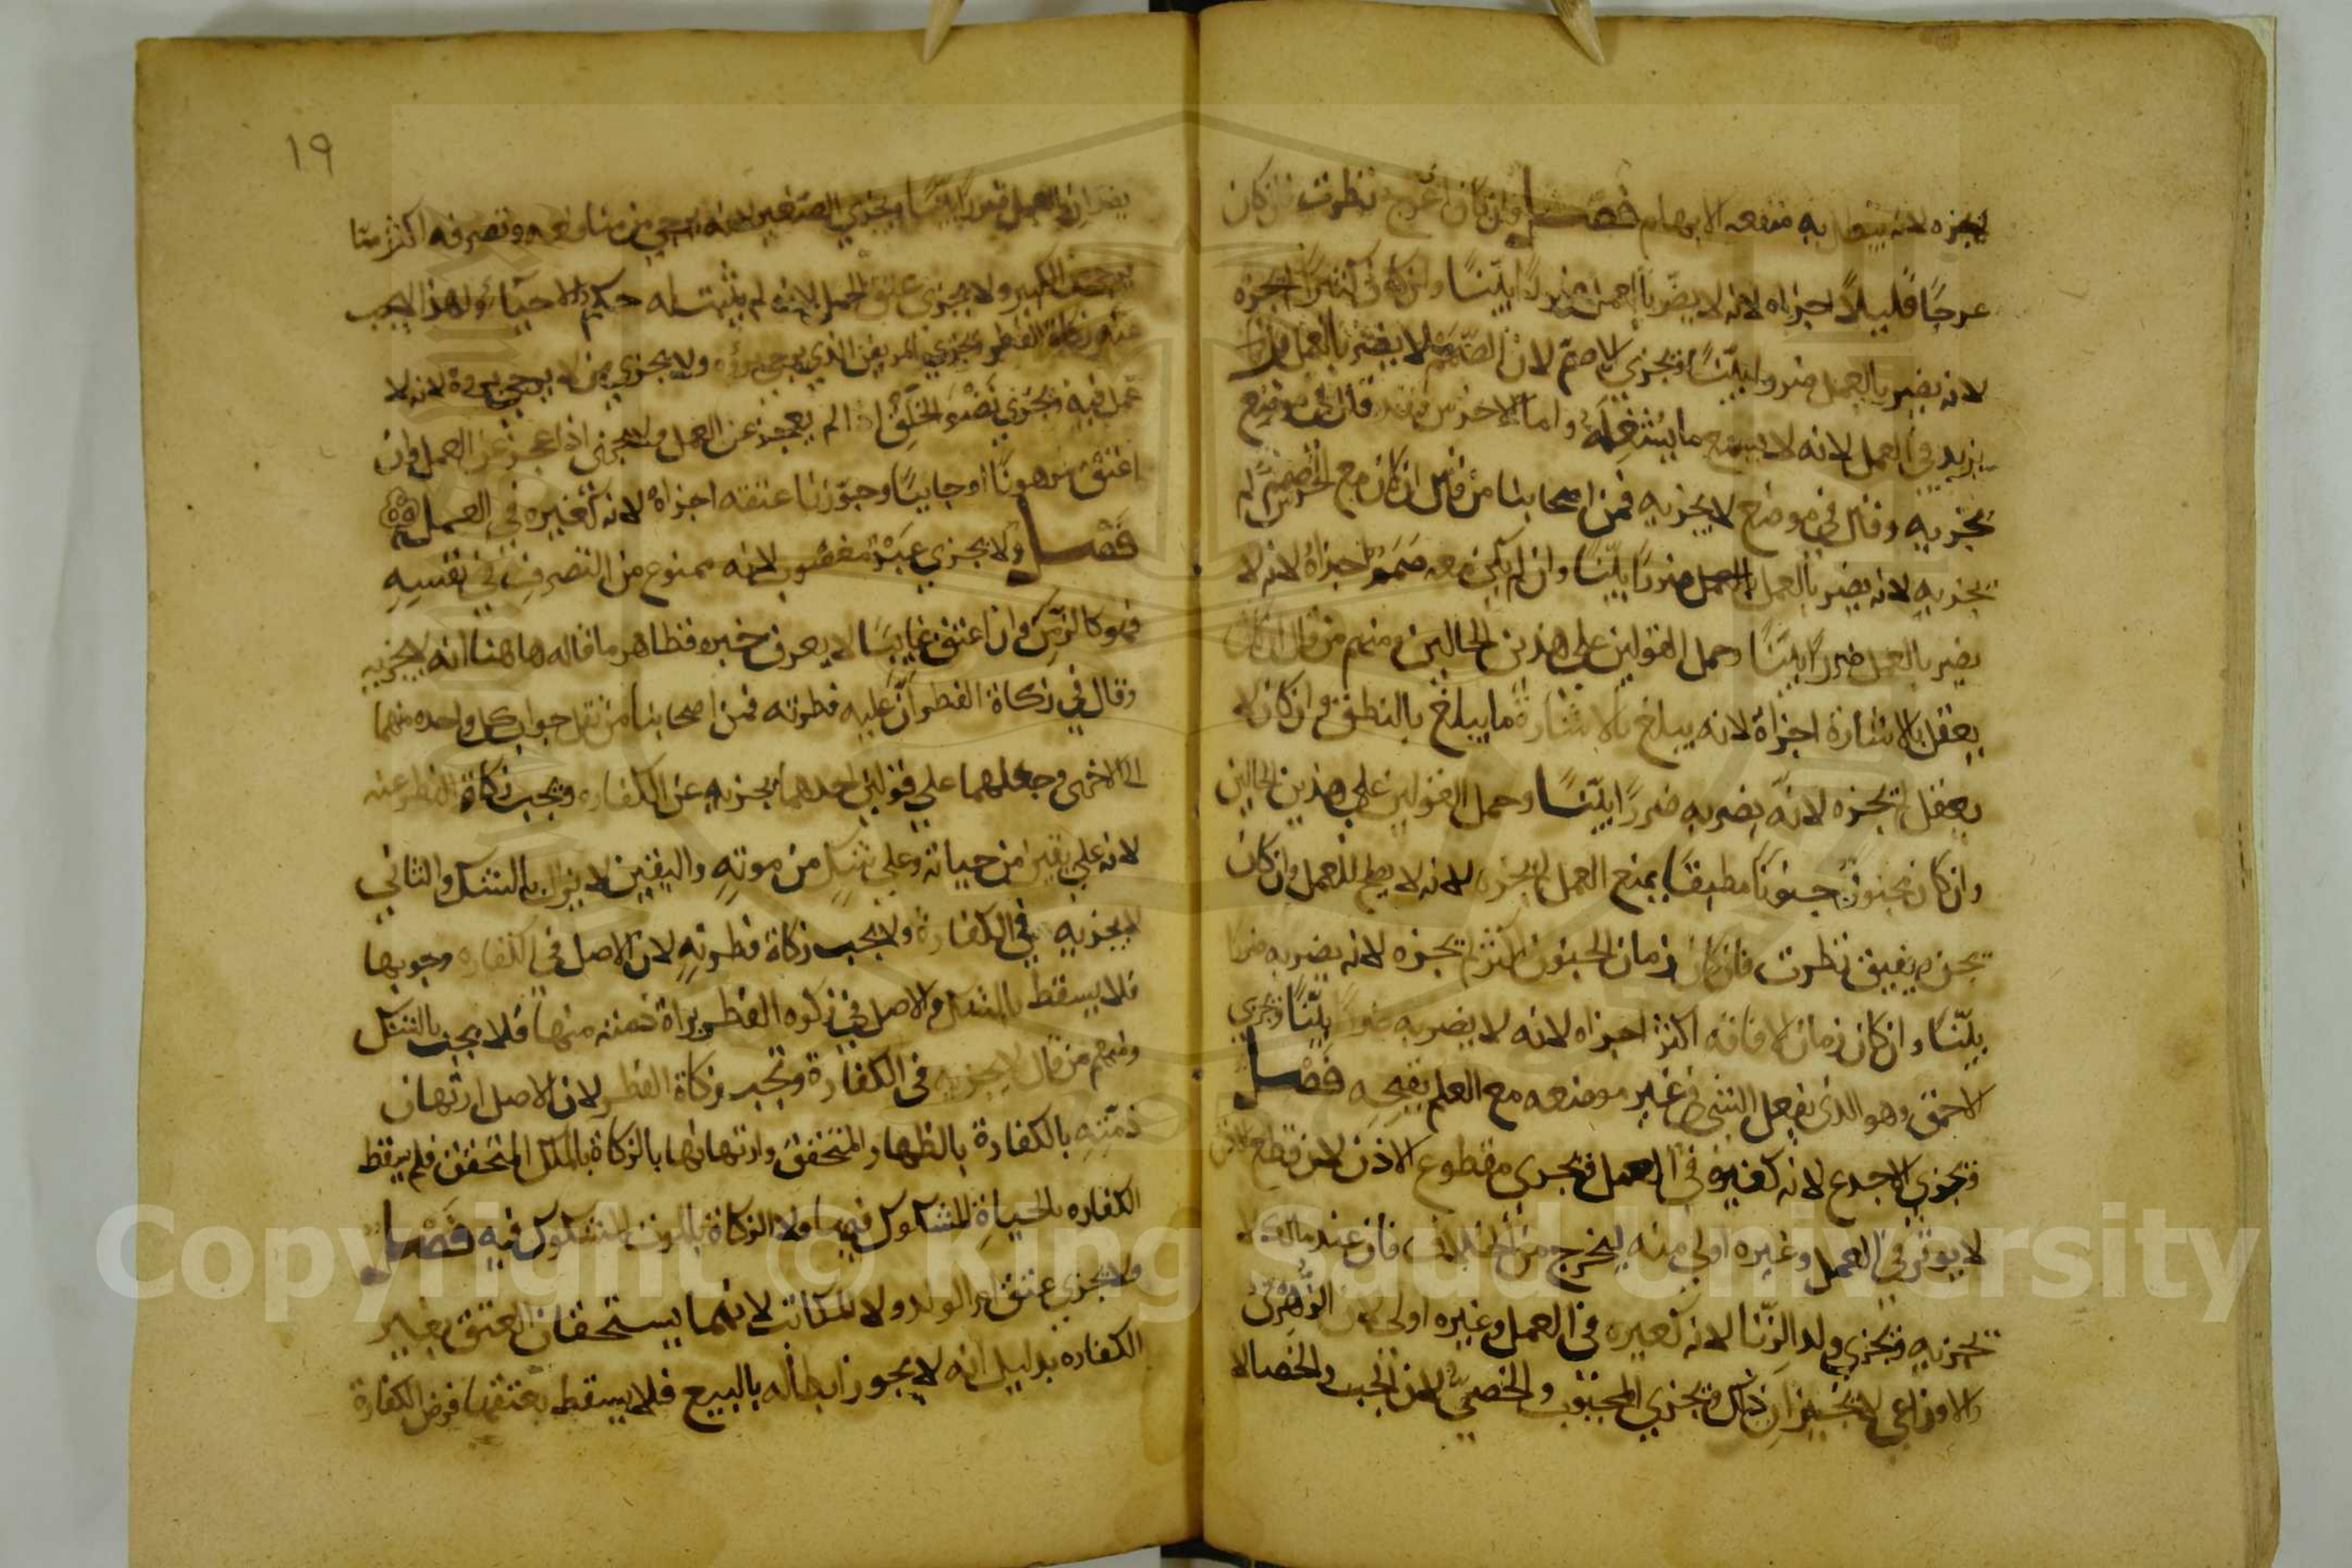 يجزه لانه يبطل به منفعه الابهام فصل وان كان اعرج نظرت فان كان
عرجًا قليلاً اجزاه لانه لا يضر بالعمل ضررًا بيّنًا وان كان كثيرًا لم يجزه
لانه يضر بالعمل ضررا بيّنًا ويجزي الاصم لان الصمم لا يضر بالعمل بل
يزيد في العمل لانه لا يسمع ما يشغله واما الاخرس فقد قال في موضع
يجزيه وقال في موضع لا يجزيه فمن اصحابنا من قال ان كان مع الخرس صمم لم
يجزيه لانه يضر بالعمل بالعمل ضررًا بيّنًا وان لم يكن معه صمم اجزاه لانه لا
يضر بالعمل ضررًا بيّنًا وحمل القولين على هذين الحالين ومنهم من قال ان كان
يعقل بالاشارة اجزاه لانه يبلغ بالاشارة ما يبلغ بالنطق وان كان لا
يعقل لم يجزه لانه يضر به ضررًا بيّنًا وحمل القولين على هذين الحالين
وان كان مجنونًا جنونًا مطبقًا يمنع العمل لم يجزه لانه لا يصلح للعمل وان كان
يجن ويفيق نظرت فان كان زمان الجنون اكثر لم يجزه لانه يضر به ضررا
بيّنًا وان كان زمان الافاقه اكثر اجزاه لانه لا يضر به ضررًا بيّنًا ويجزي
الاحمق وهو الذي يفعل الشي في غير موضعه مع العلم بقبحه فصل
ويجزي الاجدع لانه كغيره في العمل ويجزي مقطوع الاذن لان قطع الاذن
لا يوثر في العمل وغيره اولى منه ليخرج من الخلاف فان عند مالك لا
يجزيه ويجزي ولد الزنا لانه كغيره في العمل وغيره اولى لان الزهري
والاوزاعي لا يجيزان ذلك ويجزي المجبوب والخصي لان الجب والخصا لا
١٩
يضران بالعمل ضررًا بيّنًا ويجزي الصغير لانه يرجي من منافعه وتصرفه اكثر مما
يرجي من الكبير ولا يجزي عتق الحمل لانه لم يثبت له حكم الاحياء ولهذا لا يجب
عنه زكاة الفطر ويجزي المريض الذي يرجي برؤه ولا يجزي من لا يرجي برؤه لانه لا
عمل فيه ويجزي نضو الخلق اذا لم يعجز عن العمل ولا يجزي اذا عجز عن العمل وان
اعتق مرهونًا او جانيًا وجوزنا عتقه اجزاه لانه كغيره في العمل
فصل ولا يجزي عبد مغصوب لانه ممنوع من التصرف في نفسه
فهو كالزمن وان اعتق غايبًا لا يعرف خبره فظاهر ما قاله هاهنا انه لا يجزيه
وقال في زكاة الفطر ان عليه فطرته فمن اصحابنا من نقل جواب كل واحده منهما
الى الاخرى وجعلهما على قولين احدهما يجزيه عن الكفاره ويجب زكاة الفطر عنه
لانه على يقين من حياته وعلى شك من موته واليقين لا يزال بالشك والثاني
لا يجزيه في الكفارة ولا يجب زكاة فطرته لان الاصل في الكفاره وجوبها
فلا يسقط بالشك والاصل في زكوه الفطر براة ذمته منها فلا يجب بالشك
ومنهم من قال لا يجزيه في الكفارة وتجب زكاة الفطر لان الاصل ارتهان
ذمته بالكفارة بالظهار المتحقق وارتهانها بالزكاة بالملك المتحقق فلم يسقط
الكفاره بالحياة المشكوك فيها ولا الزكاة بالموت المشكوك فيه فصل
ولا يجزي عتق ام الولد ولا المكاتب لانهما يستحقان العتق بغير
الكفاره بدليل انه لا يجوز ابطاله بالبيع فلا يسقط بعتقهما فرض الكفارة
Copyright © King Saud University